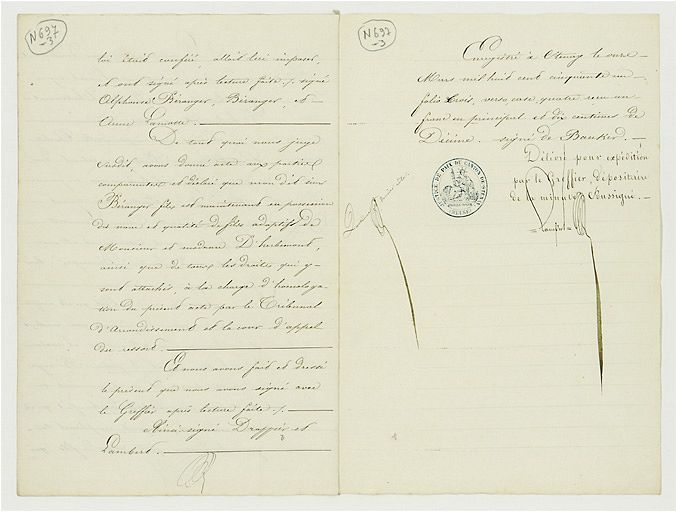 N697
-3
lui était conférée, allait lui imposer,
et ont signé après lecture faite /. signé
Alphonse Béranger, Béranger, et
Anne Lamotte
De tout quoi nous juge
susdit, avons donné acte aux parties
comparantes et déclaré que mon dit sieur
Béranger fils est maintenant en possession
des nom et qualité de fils adoptif de
Monsieur et madame D'herbemont,
ainsi que de tous les droits qui y
sont attachés, à la charge d'homologa-
tion du présent acte par le Tribunal
d'Arrondissement et la cour d'appel
du ressort.
Et nous avons fait et dressé
le présent que nous avons signé avec
le Greffier après lecture faite /.
Ainsi signé Drappier et
Lambert.
N697
-3
Enregistré à Stenay le onze
Mars mil huit cent cinquante un
folio trois, verso case quatre reçu un
franc en principal et dix centimes de
Décime. signé de
Délivré pour expédition
par le Greffier, dépositaire
de la minute Soussigné.